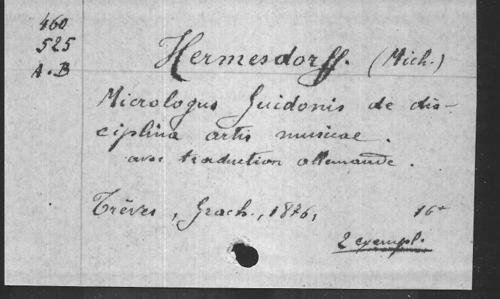 460
525
A.B
Hermesdorff. (Mich.)
Micrologus Guidonis de dis-
ciplina artis musicae.
avec traduction allemande.
Trèves, Grach., 1876,
16°
2 exempl.